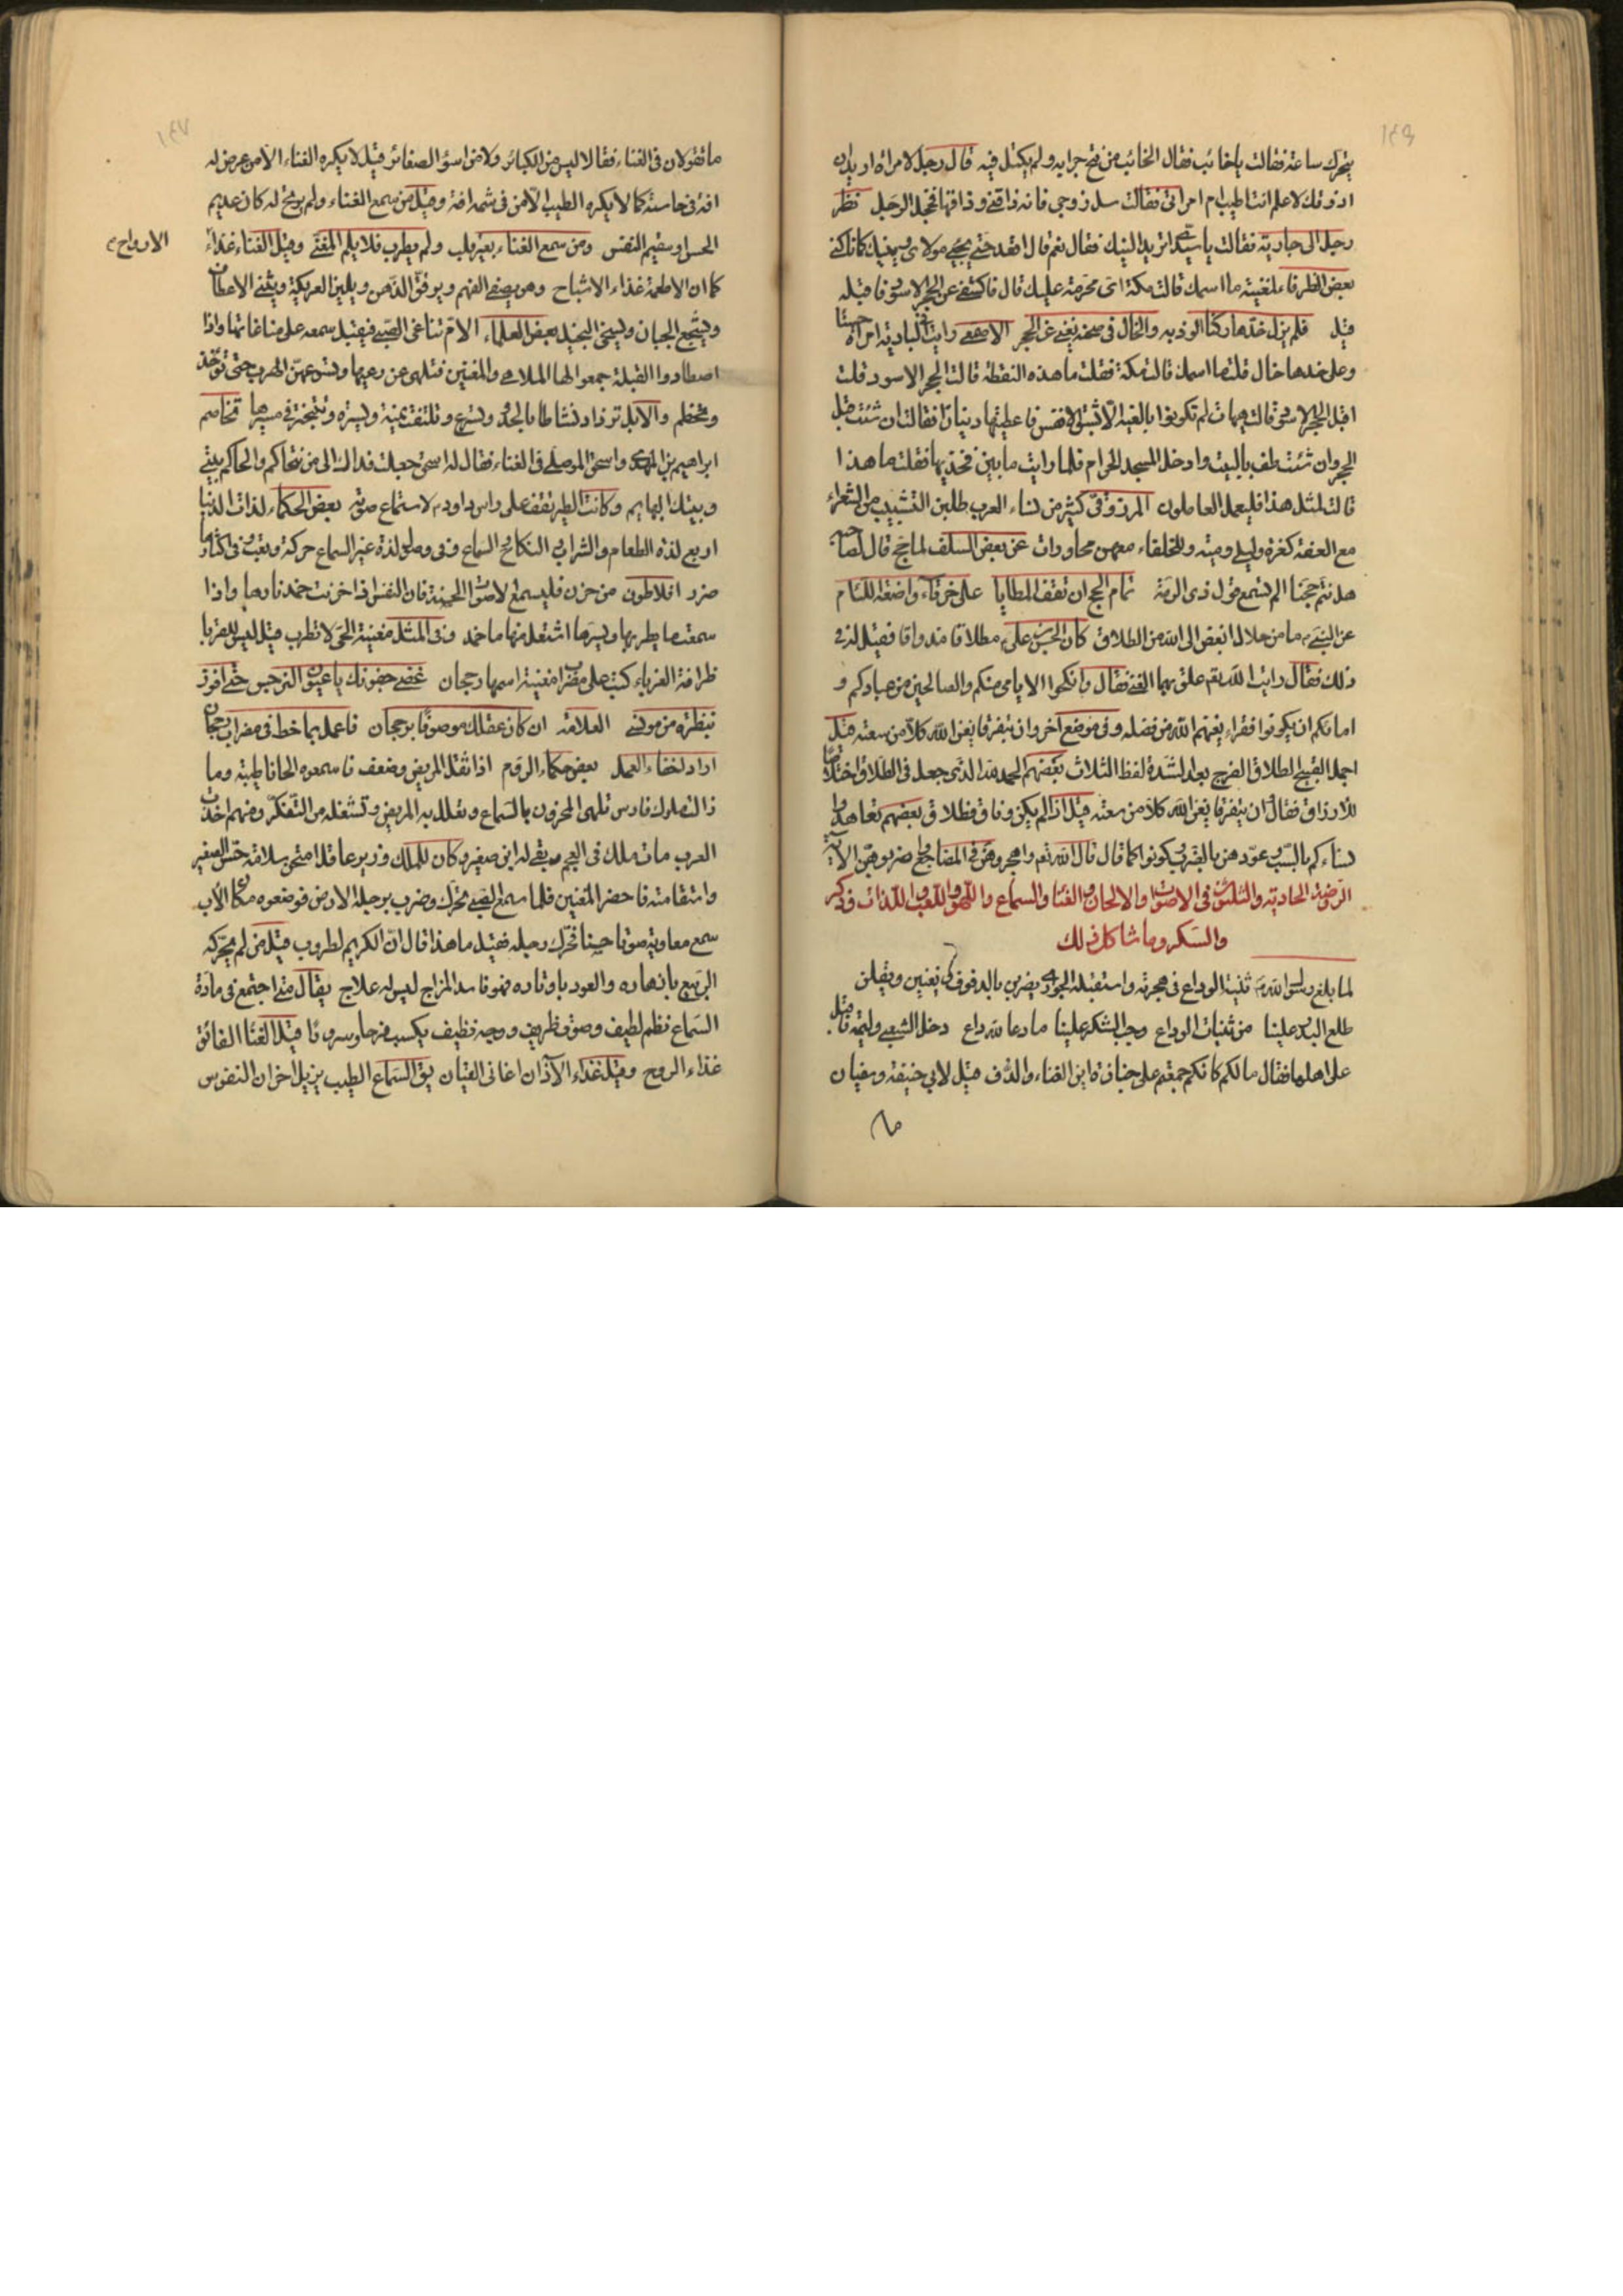 ١٤٦
يتحرك ساعة فقالت يا خائب فقال الخائب من فتح جرابه ولم يكتل فيه قال رجل لامراة اريد ان
اذوقك لاعلم انت اطيب ام امراتى فقالت سل زوجى فانه ذاقنى وذاقها فخجل الرجل نظر
رجل الى جارية فقالت يا سيدى اتريد النيك فقال نعم قال اقعد حتى يجيء مولاى
بعض الظرفاء لمغنية ما اسمك قالت مكة اى محرمة عليك قال فاكشفى عن الحجر الاسود فاقبله
قيل فلم يزل خدها ركنا الوذ به والخال فى صحنه يغنى عن الحجر الاصمعى رايت فى البادية امراة حسنا
وعلى خدها خال قلت ما اسمك قالت مكة فقلت ما هذه النقطة قالت الحجر الاسود قلت
اقبل الحجر الاسود قالت هيهات لم تكونوا بالغيه الا بشق الانفس فاعطيتها دينارا فقالت ان شئت قبل
الحجر وان شئت طف بالبيت وادخل المسجد الحرام فلما رايت ما بين فخذيها فقلت ما هذا
قالت لمثل هذا فليعمل العاملون المرزوقى كثير من نساء العرب طلبن التشبيب من الشعراء
مع العفة كعزة وليلى ومية وللخلفاء معهن محاورات عن بعض السلف لما حج قال لصاحبه
هل نتم حجنا الم تسمع قول ذى الرمة تمام الحج ان تقف المطايا على خرقاء واضعة اللثام
عن النبى ما من حلال ابغض الى الله من الطلاق كان الحسن بن على مطلاقا مذواقا فقيل له فى
ذلك فقال رايت الله تعالى علق بهما الغنى فقال وانكحوا الايامى منكم والصالحين من عبادكم و
امائكم ان يكونوا فقراء يغنهم الله من فضله وفى موضع آخر وان يتفرقا يغن الله كلا من سعته قيل
اجمل القبيح الطلاق الفرج بعد الشدة لفظ الثلاث بعضهم الحمد لله الذى جعل فى الطلاق اختلاسا
للارزاق فقال ان يتفرقا يغن الله كلا من سعته قيل اذا لم يكن وفاق فطلاق بعضهم تعاهدوا
نساءكم بالسب عودوهن بالضرب كونوا كما قال قال الله تعالى واهجروهن فى المضاجع واضربوهن الآية
الروضة الحادية والثلثون فى الاصوات والالحان والغناء والسماع واللهو واللعب واللذات وذكر
والسكر وما شاكل ذلك
لما بلغ رسول الله ثنية الوداع فى هجرته واستقبلته الجوارى يضربن بالدفوف ويغنين ويقلن
طلع البدر علينا من ثنيات الوداع وجب الشكر علينا ما دعا لله داع دخل الشعبى وليمة فاقبل
على اهلها فقال مالكم كانكم جمعتم على جنازة اين الغناء والدف قيل لابى حنيفة وسفيان
ما
١٤٧
ما تقولان فى الغناء فقالا ليس من الكبائر ولا من اسوء الصغائر قيل لا يكره الغناء الا من عرض له
افة فى حاسته كما لا يكره الطيب الا من فى شمه افة وقيل من سمع الغناء ولم يرتح له كان عديم
الحس او سقيم النفس ومن سمع الغناء بغير قلب ولم يطرب فلا يلم المغنى وقيل الغناء غذاء
الارواح
كما ان الاطعمة غذاء الاشباح وهو يصفى الفهم ويرقق الذهن ويلين العريكة ويثنى الاعطاف
ويشجع الجبان ويسخى البخيل بعض العلماء الام تناغى الصبى فيقبل سمعه على مناغاتها واذا
اصطادوا الفيلة جمعوا لها الملاهى والمغنين فتلهى عن رعيها وتسهو عن الهرب حتى تؤخذ
وتخطم والابل تزداد نشاطا بالحدو وتسرع وتلتفت يمنة ويسرة وتتبختر فى مسيرها تخاصم
ابراهيم بن المهدى واسحق الموصلى فى الغناء فقال له اسحق جعلت فداك الى من نتحاكم والحاكم بينى
وبينك البهايم وكانت الطير تقف على راس داود لاستماع صوته بعض الحكماء لذات الدنيا
اربع لذة الطعام والشراب النكاح السماع وفى وصل لذة غير السماع حركة وتعب وفى اكثارها
ضرر افلاطون من حزن فليسمع الاصوات الحسنة فان النفس اذا حزنت خمد نارها واذا
سمعت ما يطربها ويسرها اشتعل منها ما خمد وفى المثل مغنية الحى لا تطرب قيل ليس للقربا
ظرافة الغرباء كتب على مضراب مغنية اسمها رجحان غضى جفونك يا عيون النرجس حتى افوز
بنظرة من مونسى العلامة ان كان عقلك موصوفا برجحان فاعمل بما خط فى مضراب رجحان
اراد لخفاء العمل بعض حكماء الروم اذا ثقل المريض وضعف فاسمعوه الحانا طيبة وما
زالت ملوك فارس تلهى المحزون بالسماع وتعلل به المريض وتشغله من التفكر ومنهم اخذت
العرب مات ملك فى العجم بقى له ابن صغير وكان للملك وزير عاقل امتحن سلامة حس الصغير
واستقامته فاحضر المغنين فلما سمع الصبى تحرك وضرب برجله الارض فوضعوه مكان الاب
سمع معاوية صوتا حسنا فحرك رجله فقيل ما هذا قال ان الكريم لطروب قيل من لم يحركه
الربيع بازهاره والعود باوتاره فهو فاسد المزاج ليس له علاج يقال متى اجتمع فى مادة
السماع نظم لطيف وصوت ظريف ووجه نظيف يكسب فرحا وسرورا قيل الغنا الفائق
غذاء الروح وقيل غذاء الآذان اغانى القيان يق السماع الطيب يزيل احزان النفوس